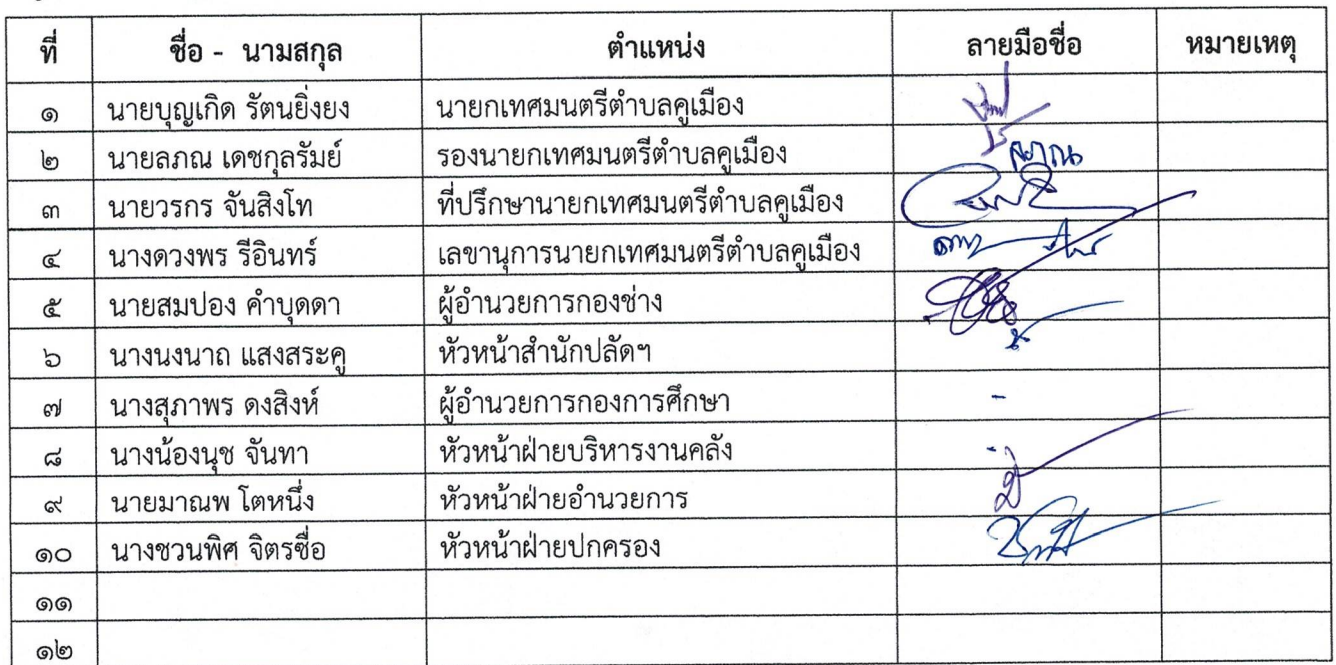 ที่ ชื่อ - นามสกุล ตำแหน่ง ลายมือชื่อ หมายเหตุ
๑ นายบุญเกิด รัตนยิ่งยง นายกเทศมนตรีตำบลคูเมือง
๒ นายลภณ เดชกุลรัมย์ รองนายกเทศมนตรีตำบลคูเมือง ลภณ
๓ นายวรกร จันสิงโท ที่ปรึกษานายกเทศมนตรีตำบลคูเมือง
๔ นางดวงพร รีอินทร์ เลขานุการนายกเทศมนตรีตำบลคูเมือง
๕ นายสมปอง คำบุดดา ผู้อำนวยการกองช่าง
๖ นางนงนาถ แสงสระคู หัวหน้าสำนักปลัดฯ
๗ นางสุภาพร ดงสิงห์ ผู้อำนวยการกองการศึกษา -
๘ นางน้องนุช จันทา หัวหน้าฝ่ายบริหารงานคลัง
๙ นายมาณพ โตหนึ่ง หัวหน้าฝ่ายอำนวยการ
๑๐ นางชวนพิศ จิตรซื่อ หัวหน้าฝ่ายปกครอง
๑๑
๑๒